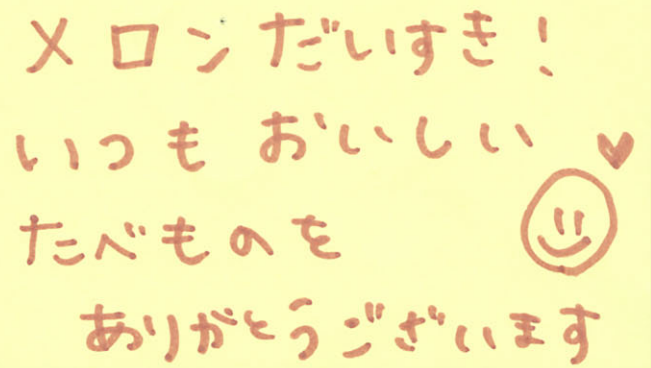 メロンだいすき！
いつもおいしい
たべものを
ありがとうございます